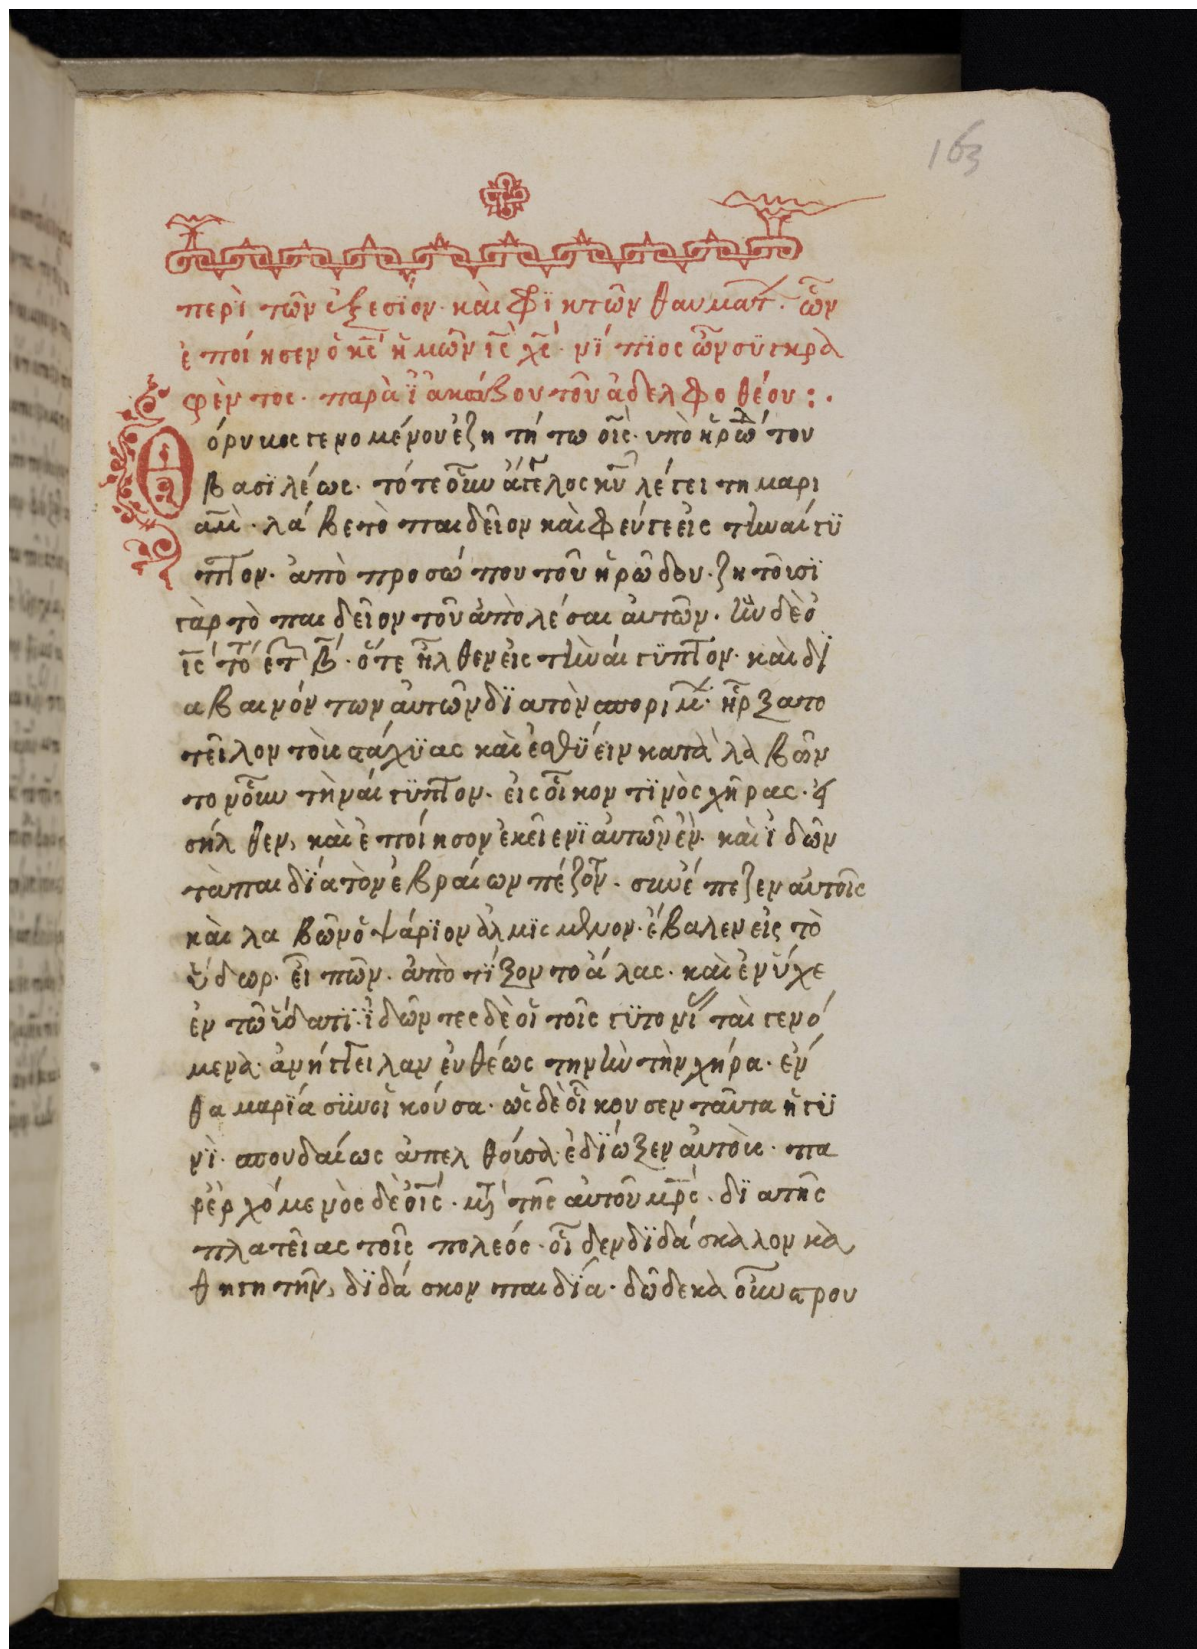 163
περὶ τῶν ἐξεσΐον· καὶ φϊκτῶν θαυμάτ· ὧν
ἐποίησεν ὁ κ̅ς̅ ἡμῶν ι̅ς̅ χ̅ς̅· νίπϊος ὧν σϋγκρὰ
φὲν τος· παρὰ ϊακώβου τοῦ ἀδελφο θέου :·
Θόρυκος γενομένου ἐζητή τω ὁ ι̅ς̅· υπὸ ἡρώδου τοῦ
βασϊλέως· τότε οὖν ἄγγελος κυ λέγει τη μαρι
αμ· λάβε τὸ παιδεῖον καὶ φεύγε εἰς τὴν αίγϋ
πτον· ἀπὸ προσώπου τοῦ ἡρῶδου· ζητοῖσϊ
γὰρ τὸ παιδεῖον τοῦ ἀπὸλέσαι αὐτῶν· ἦν δὲ ὁ
ι̅ς̅ τό ετ β· ὅτε ἦλθεν εἰς τὴν αίγϋπτον· καὶ δϊ
αβαινόν των αὐτῶν δϊα τὸν σπορίμ· ἦρξαπο
τεῖλον τὸυς στάχϋας καὶ ἐσθϋέιν καταλὰβῶν
τον οὖν τὴν αίγϋπτον· εἰς οἶκον τϊνὸς χήρας· ἐ
σήλθεν, καὶ ἐποίησον ἐκεῖ ενϊαυτῶν ἐν· καὶ ϊδῶν
τὰ παιδΐα τὸν ἐβραίων πέζον· συνέπεζεν αὐτοῖς
καὶ λαβῶν ὀψάρϊον ἁλμϊσμένον· ἔβαλεν εἰς τὸ
ὕδωρ· εἰπῶν· ἀπὸ τϊξον το ἅλας· καὶ ἐνύχε
ἐν τῶ ὕδατϊ· ϊδῶντες δὲ οἱ τοῖς γϋτονϊ ταὶ γενό
μενα· ἀνήγγειλαν ἐυθέως την τὴν χήρα· ἐν
θα μαρϊά σϋνοἰκούσα· ὡς δὲ οἴκουσεν ταῦτα ἡ γϋ
νὶ· σπουδαίως ἀπελθοίσα ἐδϊώξεν ἀυτὸυς· πα
ρἐρχόμενὸς δὲ ὁ ι̅ς̅· μτ τῆς αὐτοῦ μ̅ρ̅ς̅· δϊα τῆς
πλατεῖας τοῖς πολεός· οἶδεν δϊδάσκαλον κα
θητην, δϊδάσκον παιδϊά· δῶδεκὰ οὖν στρου